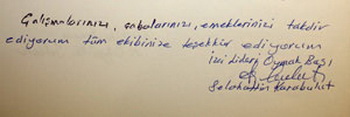 Çalışmalarınızı, çabalarınızı, emeklerinizi takdir
ediyorum tüm ekibinize teşekkür ediyorum
İzci Lideri Oymak Başı
Selahattin Karabulut